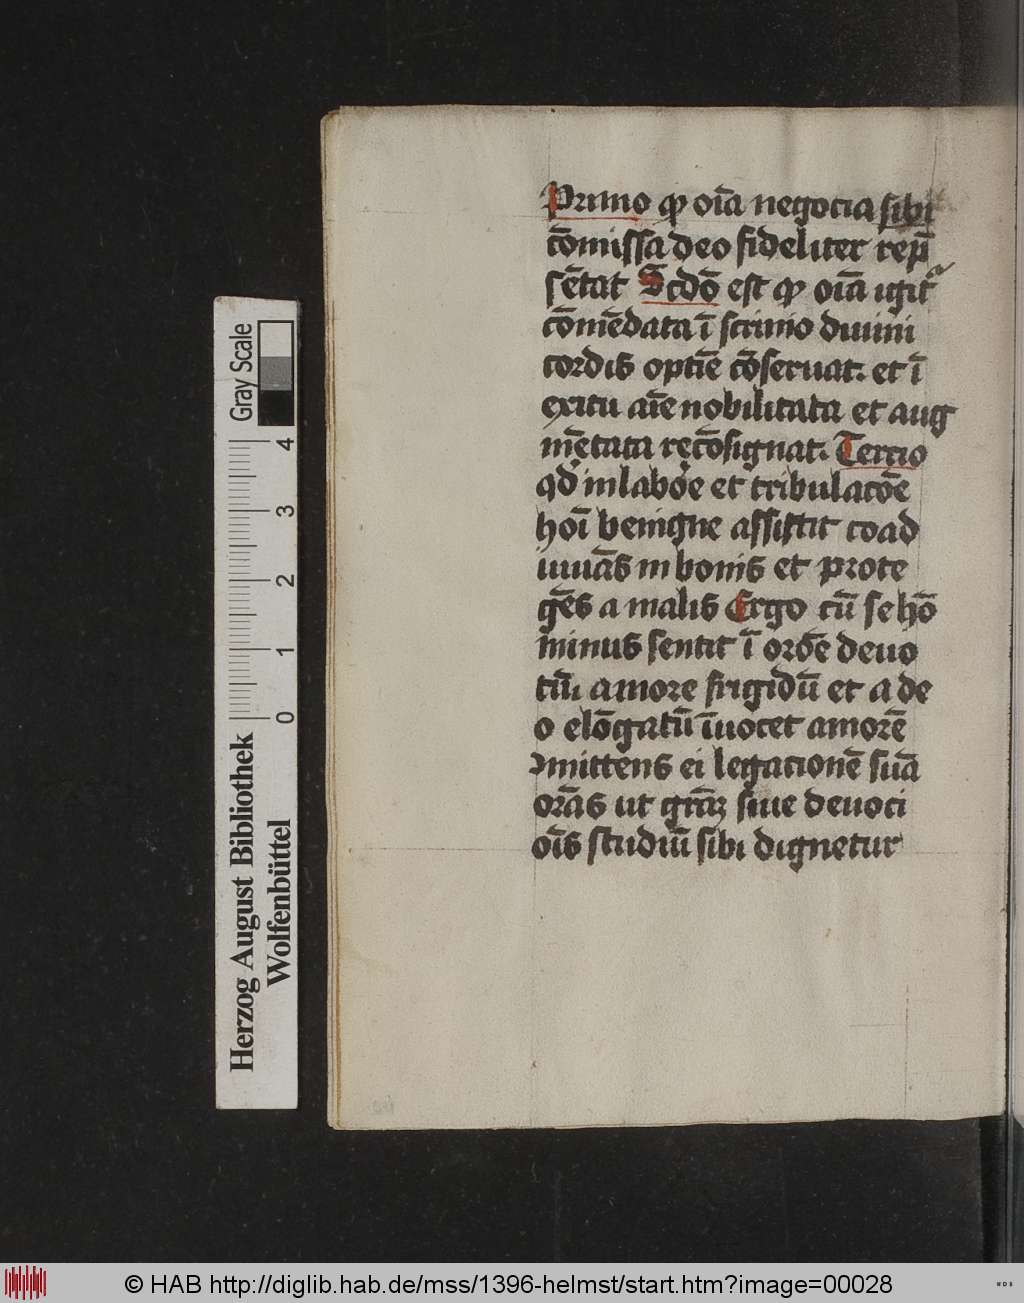 Primo qꝫ oīa negocia sibi
cōmissa deo fideliter rep̄
sētat Scdō est qꝫ oīa igit᷑
cōmēdata ī scrinio diuini
cordis optīe cōseruat. et ī
exitu aīe nobilitata et aug
mētata recōsignat. Tercio
qd̄ in laboꝛe et tribulacōe
hoī benigne assistit coad
iuuās in bonis et prote
gēs a malis Ergo cū se hō
minus sentit ī oꝛōe deuo
tū, amore frigidū et a de
o elōgatū īuocet amorē
mittens ei legacionē suā
oꝛās ut grāꝫ siue deuoci
oīs studiū sibi dignetur
Gray Scale
0 1 2 3 4
Herzog August Bibliothek
Wolfenbüttel
© HAB http://diglib.hab.de/mss/1396-helmst/start.htm?image=00028